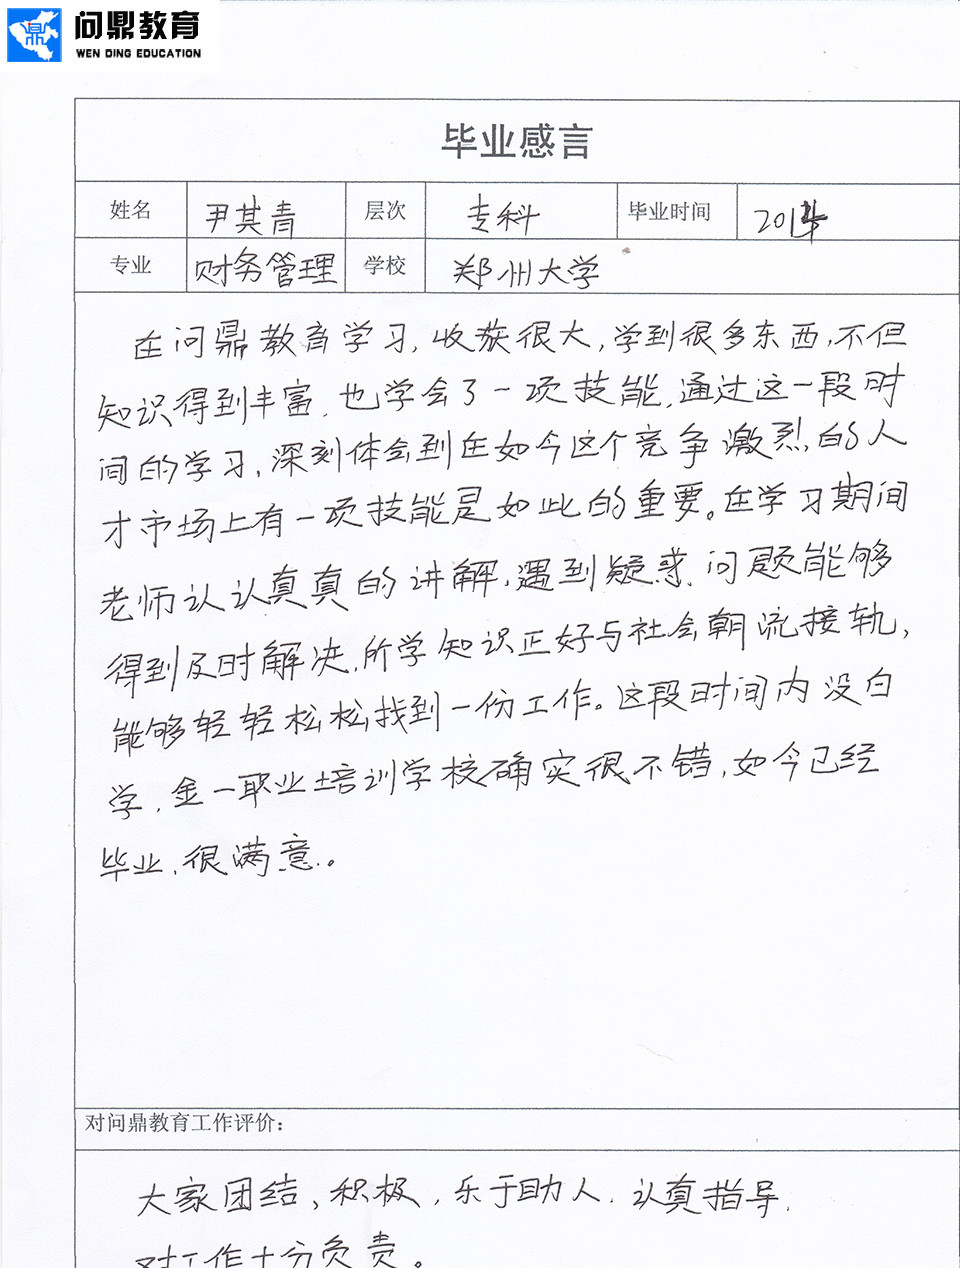 问鼎教育
WEN DING EDUCATION
毕业感言
姓名 尹其青 层次 专科 毕业时间 2014
专业 财务管理 学校 郑州大学
在问鼎教育学习，收获很大，学到很多东西，不但
知识得到丰富，也学会了一项技能，通过这一段时
间的学习，深刻体会到在如今这个竞争激烈的人
才市场上有一项技能是如此的重要。在学习期间
老师认认真真的讲解，遇到疑惑、问题能够
得到及时解决，所学知识正好与社会朝流接轨，
能够轻轻松松找到一份工作。这段时间内没白
学，金一职业培训学校确实很不错，如今已经
毕业，很满意。
对问鼎教育工作评价：
大家团结、积极，乐于助人，认真指导，
对工作十分负责。